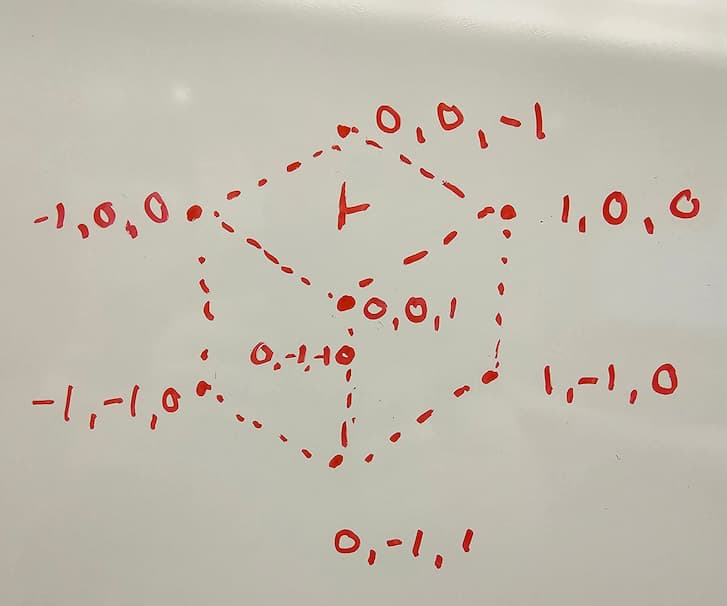 0, 0, -1
-1, 0, 0
1, 0, 0
0, 0, 1
-1, -1, 0
1, -1, 0
0, -1, 1